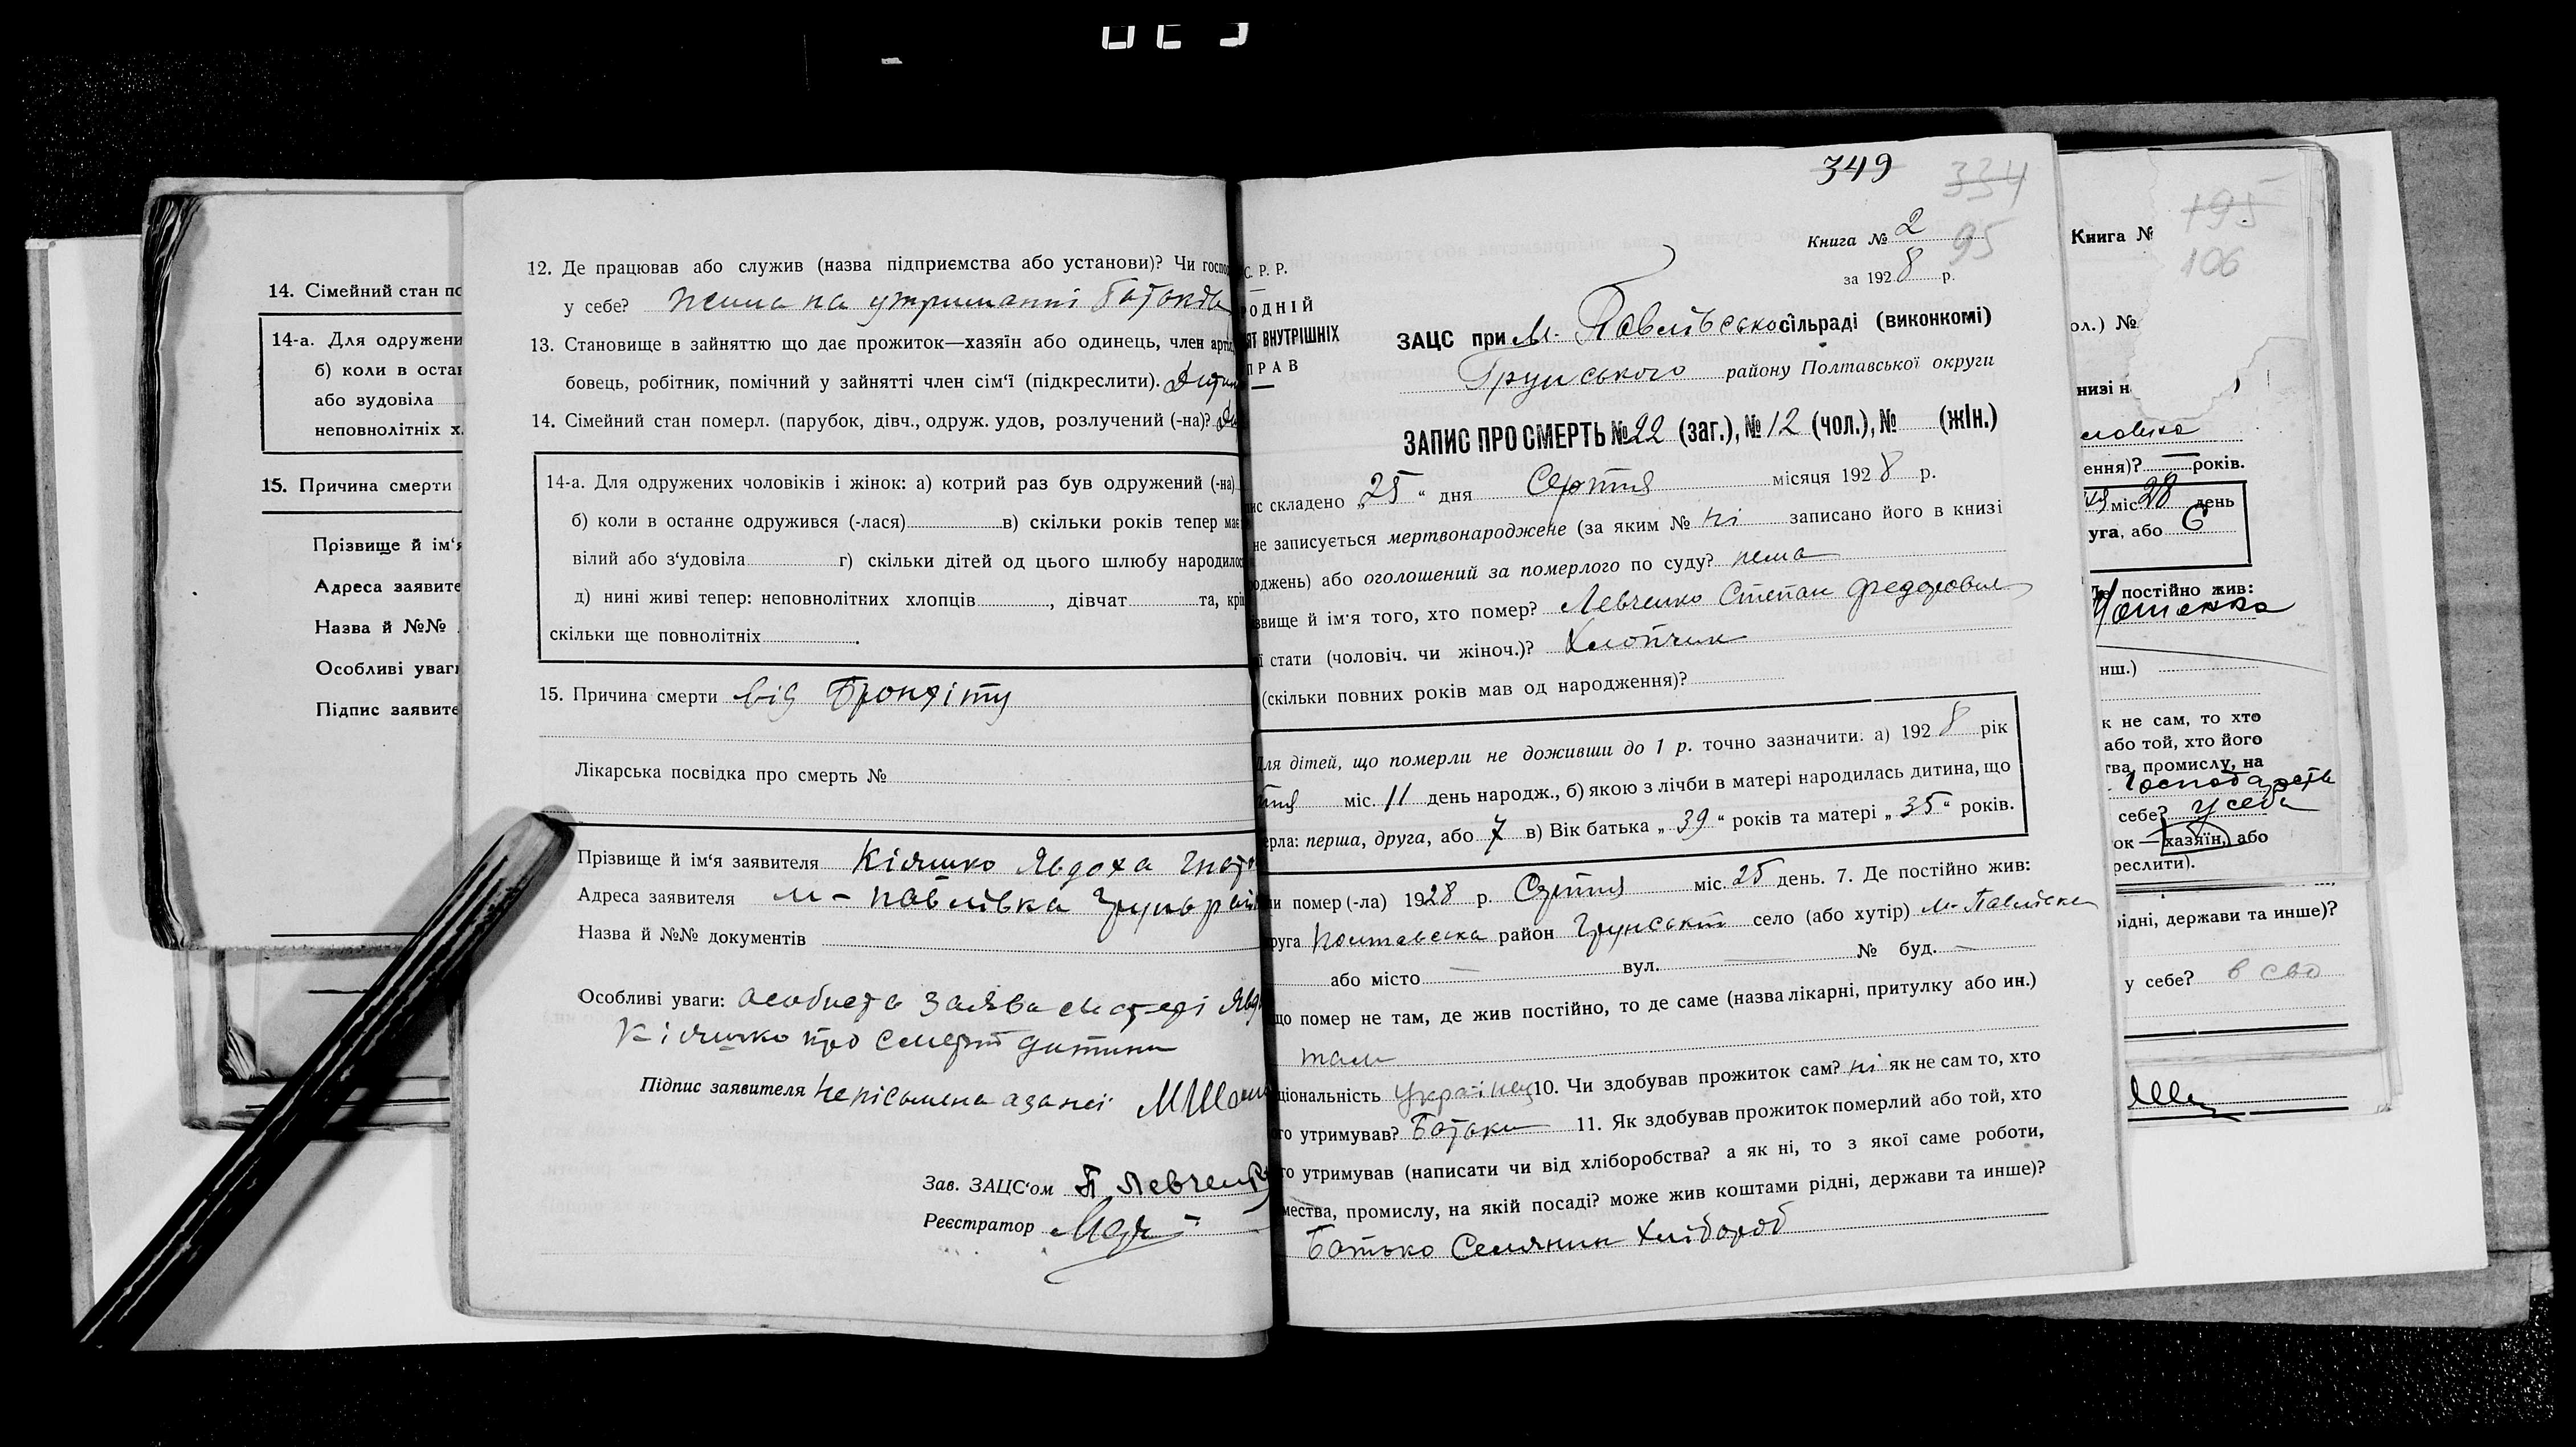 14. Сімейний стан по
14-а. Для одружени
б) коли в остан
або вудовіла
неповнолітніх х
15. Причина смерти
Прізвище й ім'я
Адреса заявите
Назва й №№
Особливі уваги
Підпис заявите
12. Де працював або служив (назва підприємства або установи)? Чи госпо
у себе? на утриманні
13. Становище в зайняттю що дає прожиток—хазяїн або одинець, член арті
бовець, робітник, помічний у зайнятті член сім'ї (підкреслити).
14. Сімейний стан померл. (парубок, дівч., одруж. удов, розлучений (-на)?
14-а. Для одружених чоловіків і жінок: а) котрий раз був одружений (-на)
б) коли в останнє одружився (-лася) в) скільки років тепер має
вілий або з'удовіла г) скільки дітей од цього шлюбу народилос
д) нині живі тепер: неповнолітних хлопців, дівчат та, крі
скільки ще повнолітніх.
15. Причина смерти від Бронхіту
Лікарська посвідка про смерть №
Прізвище й ім'я заявителя Кіяшко Явдоха Гнато
Адреса заявителя м-Павлівка Грунь рай
Назва й №№ документів
Особливі уваги: особиста заява матері Явд
Кіяшко про смерть дитини
Підпис заявителя неписьмена за неї
Зав. ЗАЦС'ом П Левченко
Реєстратор
349 334
Книга № 2 95
за 1928 р.
С. Р. Р.
РОДНІЙ
ЯТ ВНУТРІШНІХ
ПРАВ
ЗАЦС при М. Павлівсько сільраді (виконкомі)
Грунського району Полтавської округи
ЗАПИС ПРО СМЕРТЬ № 22 (заг.), № 12 (чол.), № (жін.)
ис складено „25" дня Серпня місяця 1928 р.
не записується мертвонароджене (за яким № ні записано його в книзі
роджень) або оголошений за померлого по суду? нема
звище й ім'я того, хто помер? Левченко Степан Федорович
ї стати (чоловіч. чи жіноч.)? Хлопчик
(скільки повних років мав од народження)?
Для дітей, що померли не доживши до 1 р. точно зазначити: а) 1928 рік
пня міс. 11 день народж., б) якою з лічби в матері народилась дитина, що
ерла: перша, друга, або 7 в) Вік батька „39" років та матері „35" років.
ли помер (-ла) 1928 р. Серпня міс. 25 день. 7. Де постійно жив:
руга Полтавська район Грунський село (або хутір) м-Павлівка
або місто — вул. — № буд. —
що помер не там, де жив постійно, то де саме (назва лікарні, притулку або ин.)
там
ціональність Українец 10. Чи здобував прожиток сам? ні як не сам то, хто
го утримував? Батьки 11. Як здобував прожиток померлий або той, хто
го утримував (написати чи від хліборобства? а як ні, то з якої саме роботи,
мества, промислу, на якій посаді? може жив коштами рідні, держави та инше)?
Батько Селянин Хлібороб
195
Книга № 106
ол.) №
низі н
ення)? — років.
міс. 28 день
уга, або 6
Де постійно жив:
нш.)
к не сам, то хто
або той, хто його
тва, промислу, на
себе? у себе
ок — хазяїн, або
реслити).
рідні, держави та инше)?
у себе?